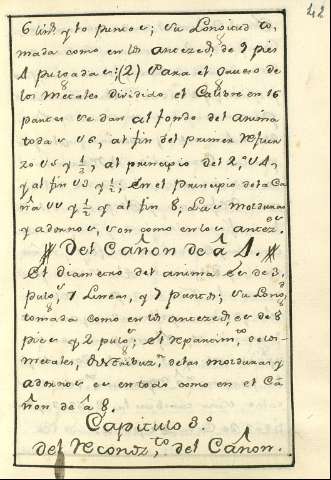 42
6 lin.s y 10 puntos; su Longitud to-
mada como en los anteced.s de 9 pies
4 pulgadas:(2) Para el grueso de
los Metales dividido el Calibre en 16
partes se dan al fondo del anima
todas 16, al fin del primer refuer
zo 15 y 1/2, al principio del 2.º 14,
y al fin 13 y 1/2; en el Principio de la Ca
ña 11 y 1/2 y al fin 8, Las molduras
y adornos, son como en los antez.es
Del Cañon de â 4.
El diametro del anima es de 3.
pulg.s, 1 Lineas, y 7 puntos; su Long.d
tomada como en los anteced.s es de 8
pies y 2 pulg.s; El repartim.to de los
metales, distribuz.n de las molduras y
adornos es en todo como en el Ca
ñon de â 8.
Capitulo 3.º
del reconoz.to del Cañon.